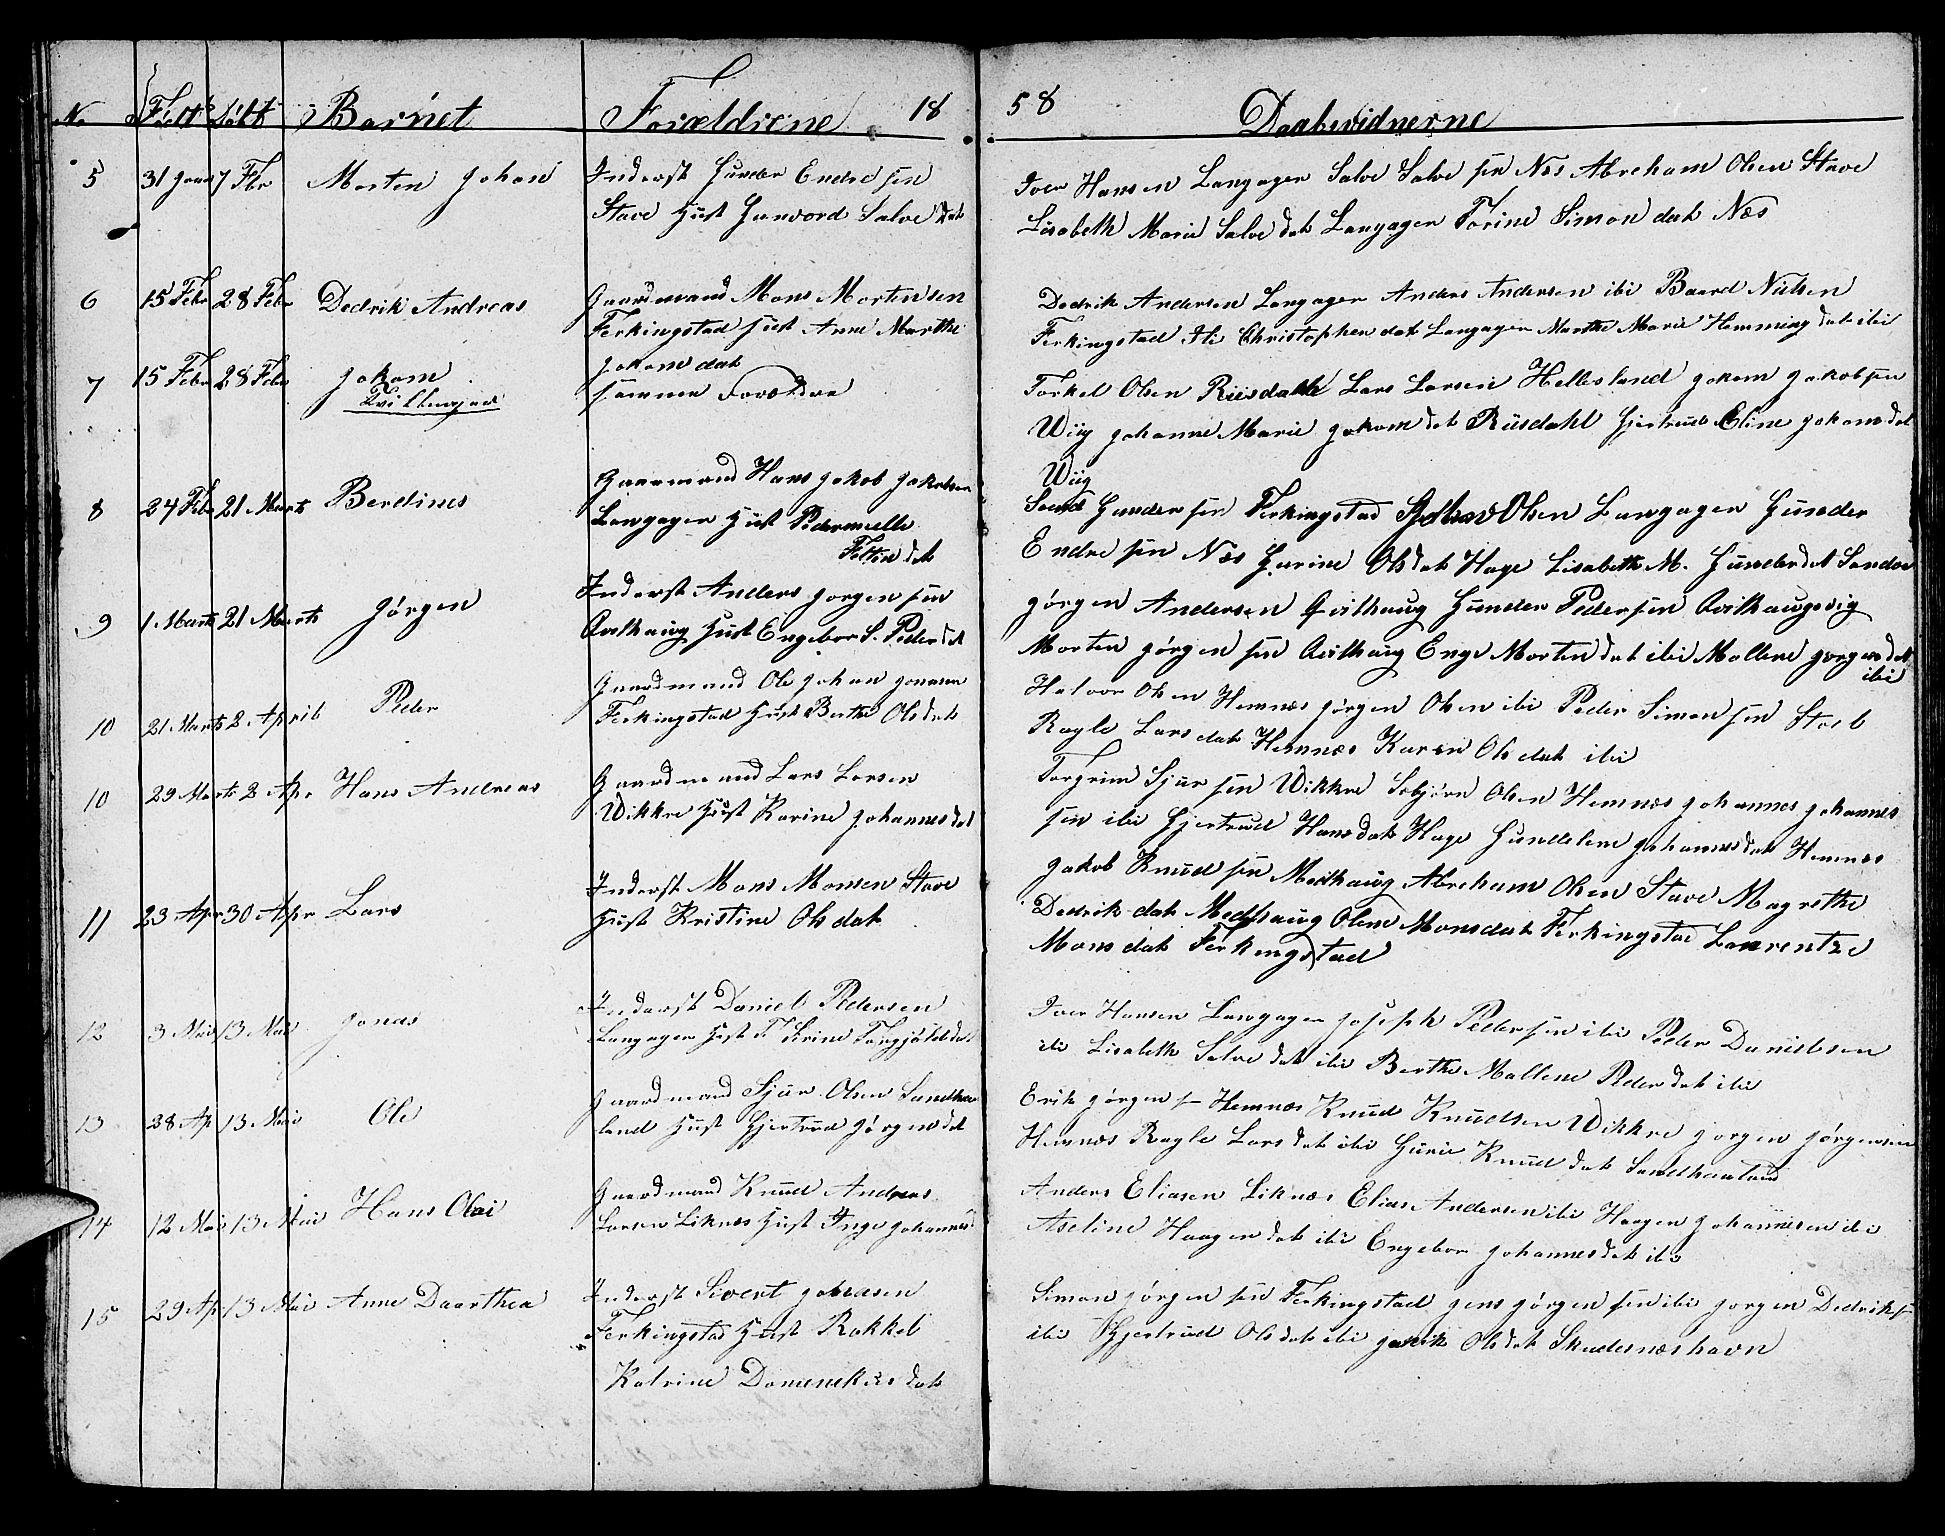 No Født Døbt Barnet Forældrene 18 58 Daabsvidnerne
5 31 Janu 7 Fbr Morten Johan Inderst Gunder Endre sen
Stave Hust Gunvord Salve dat
Iver Hansen Langager Salve Salve sen Næs Abreham Olsen Stave
Lisabeth Marie Salve dat Langager Torine Simon dat Næs
6 15 Febr 28 Febr Dedrik Andreas Gaardmand Mons Mortensen
Ferkingstad Hust Anne Marthe
Jokom dat
Dedrik Andersen Langager Anders Andersen ibi Baard Nielsen
Ferkingstad Ili Christophen dat Langager Marthe Marie Hemming dat ibi
7 15 Febr 28 Febr Jokom
Tvillinged
sammen Forældre
Torkel Olsen Riisdahl Lars Larsen Hellesland Jokom Jakobsen
Wiig Johanne Marie Jokom dat Riisdahl Gjertrud Eline Jokom dat
Wiig
8 24 Febr 21 Marts Berdines Gaarmand Hans Jakob Jakobsen
Langager Hust Pedernelle
Tollon dat
Gunder sen Ferkingstad Olsen Langager Gunder
Endre sen Næs Gurine Ols dat Hage Lisabeth M. Gunder dat Sandve
9 1 Marts 21 Marts Jørgen Inderst Anders Jorgen sen
Qvilhaug Hust Engebor S. Peder dat
Jørgen Andersen Qvilhaug Gunder Pedersen Qvilhaugsvig
Morten Jørgen sen Qvilhaug Enge Morten dat ibi Mallene Jorgen dat
ibi
10 21 Marts 2 April Peder Gaardmand Ole Johan Jonasen
Ferkingstad Hust Berthe Ols dat
Halvor Olsen Hemnæs Jørgen Olsen ibi Peder Simon sen Stol
Ragle Lars dat Hemnæs Karen Ols dat ibi
10 29 Marts 2 Apr Hans Andreas Gaardmand Lars Larsen
Wikkre Hust Karine Johannes dat
Torgrim Sjur sen Wikkre Asbjørn Olsen Hemnæs Johannes Johannes
sen ibi Gjertrud Hans dat Hage Gundelene Johannes dat Hemnæs
11 23 Apr 30 Apr Lars Inderst Mons Monsen Stave
Hust Kristine Ols dat
Jakob Knud sen Medhaug Abreham Olsen Stave Magrethe
Dedrik dat Medhaug Olene Monsdat Ferkingstad Laurentze
Mons dat Ferkingstad
12 3 Mai 13 Mai Jonas Inderst Daniel Pedersen
Langager Hust T. Serine
Iver Hansen Langager Joseph Peder sen ibi Peder Danielsen
ibi Lisabeth Salve dat ibi Berthe Mallene Peder dat ibi
13 28 Ap 13 Mai Ole Gaardmand Sjur Olsen Sandhou
land Hust Gjertrud Jørgen dat
Erik Jørgen s Hemnæs Knud Knudsen Wikkre Jorgen Jørgensen
Hemnæs Ragle Lars dat ibi Gurie Knud dat Sandhauland
14 12 Mai 13 Mai Hans Olai Gaardmand Knud Andreas
Larsen Liknæs Hust Inge Johannes d
Anders Eliasen Liknæs Elias Andersen ibi Haagen Johannesen ibi
Aseline Haagen dat ibi Engebor Johannes dat ibi
15 29 Ap 13 Mai Anne Daarthea Inderst Sivert Johnasen
Ferkingstad Hust Rakkel
Katrine Domenekus dat
Simon Jørgen sen Ferkingstad Jens Jørgen sen ibi Jorgen Dedriks
ibi Gjertrud Ols dat ibi Ols dat Skudesnæshavn